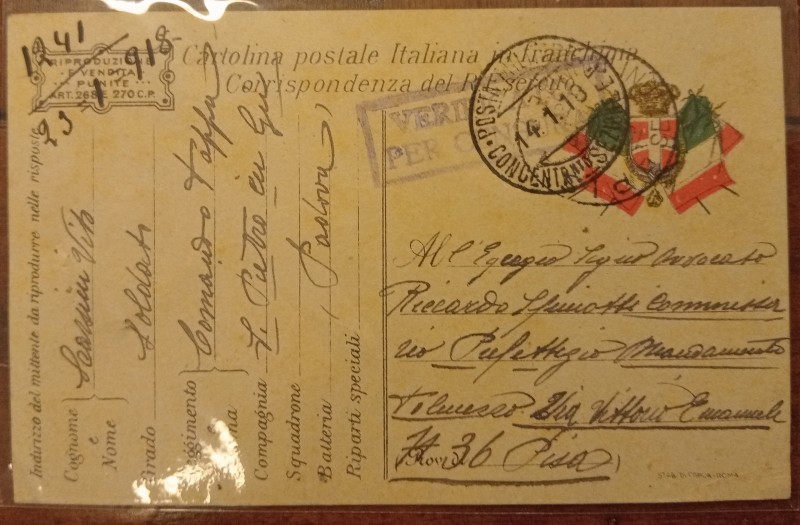 Cartolina postale Italiana in franchigia
Corrispondenza del R. Esercito
RIPRODUZIONE
E VENDITA
PUNITE
ART. 268 E 270 C.P.
1241
23 1 918
VERIFICATO
PER CENSURA
POSTA
14.1.18
CONCENTRAMENTO
Indirizzo del mittente da riprodurre nelle risposte
Cognome e Nome Vito
Grado Soldato
Reggimento Comando Tappa
Compagnia S. Pietro in Gu
Squadrone
Batteria Padova
Riparti speciali
All Egregio Signor Avvocato
Riccardo Spinotti Commissa
rio Prefettizio Mandamento
Tolmezzo Via Vittorio Emanuele
N. 36 Pisa
(Prov. di )